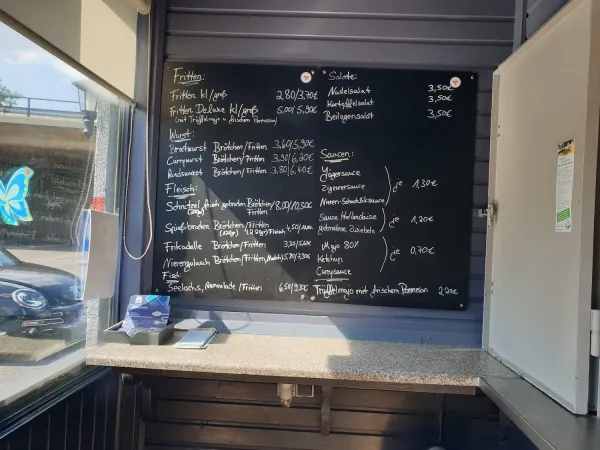 Fritten:
Fritten kl/groß 2,80/3,70€
Fritten Deluxe kl/groß 5,00/5,90€
(mit Trüffelmayo u. frischem Parmesan)
Wurst:
Bratwurst Brötchen/Fritten 3,60/5,90€
Currywurst Brötchen/Fritten 3,90/6,20€
Rindswurst Brötchen/Fritten 3,80/6,40€
Fleisch:
Schnitzel, frisch gebraten Brötchen/Fritten 8,00/10,30€
Spießbraten Brötchen/Fritten
Frikadelle Brötchen/Fritten
Nierengulasch Brötchen/Fritten,
Fisch:
Seelachs, Remoulade/Fritten
Salate:
Nudelsalat 3,50€
Kartoffelsalat 3,50€
Beilagensalat 3,50€
Saucen:
Jägersauce
Zigeunersauce je 1,30€
Nieren-Schaschliksauce
Sauce Hollandaise je 1,20€
gebratene Zwiebeln
Mayo 80%
Ketchup je 0,70€
Currysauce
Trüffelmayo mit frischem Parmesan 2,20€